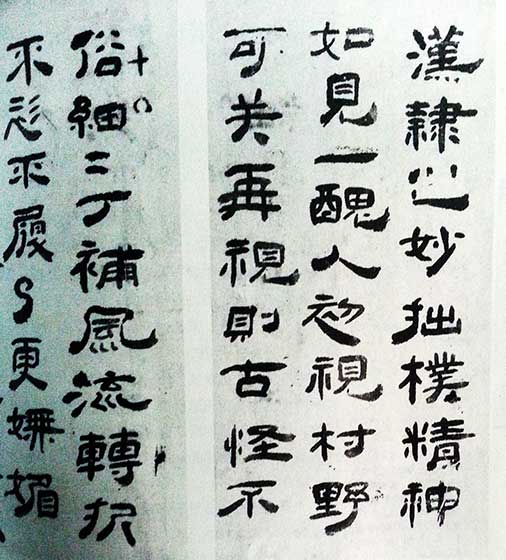 漢隸之妙拙樸精神
如見一醜人初視村野
可笑再視則古怪不
俗細二丁補風流轉折
不衫不履更嫵媚